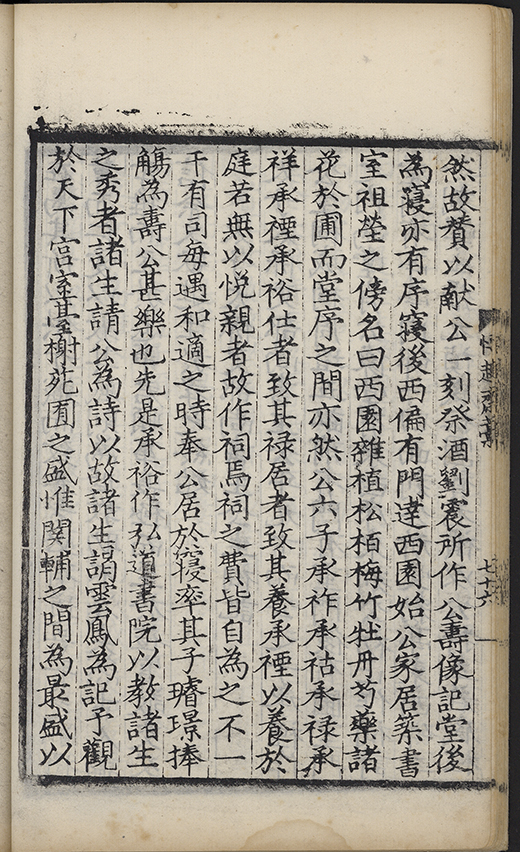 然故賛以献公一刻祭酒劉震所作公壽像記堂後
為寢亦有序寢後西偏有門逹西園始公家居築書
室祖塋之傍名曰西園雜植松栢梅竹牡丹芍藥諸
花於圃而堂序之間亦然公六子承祚承祜承禄承
祥承禋承裕仕者致其禄居者致其養承禋以養於
庭若無以悦親者故作祠焉祠之費皆自為之不一
干有司每遇和適之時奉公居於寢率其子璿璟捧
觴為壽公甚樂也先是承裕作弘道書院以教諸生
之秀者諸生請公為詩以故諸生謁雲鳳為記予觀
於天下宫室䑓榭苑囿之盛惟関輔之間為最盛以
七十六